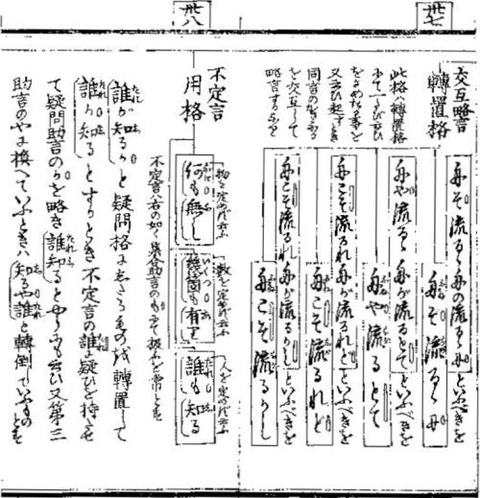 卅七
交互略言
轉置格
此格ハ轉置格
又云ひ起すとき
同言の
を交互にして
略言するなり
舟ぞ流るゝ舟の流るゝ舟といふべきを
舟ぞ流るゝ舟
舟や流るゝ舟が流るとてといふべきを
舟や流るとて
舟こそ流るれ舟が流るれどといふべきを
舟こそ流るれど
舟こそ流るれ舟が流るかしといふべきを
舟こそ流るかし
卅八
不定言
用格
物を定めぬ代言
何も無し
數を定めぬ
幾箇も有り
人を定めぬ代言
誰も知る
不定言ハ右の如く集合助言のもにて扱ふを常とす
誰が知るかと疑問格に轉置して
誰か知るとするときハ不定言の誰に疑ひを持たせ
て疑問助言のかを略き誰知るとやうにも云ひ又第三
助言のやに換へていふときハ知るや誰と轉倒ていふものとす